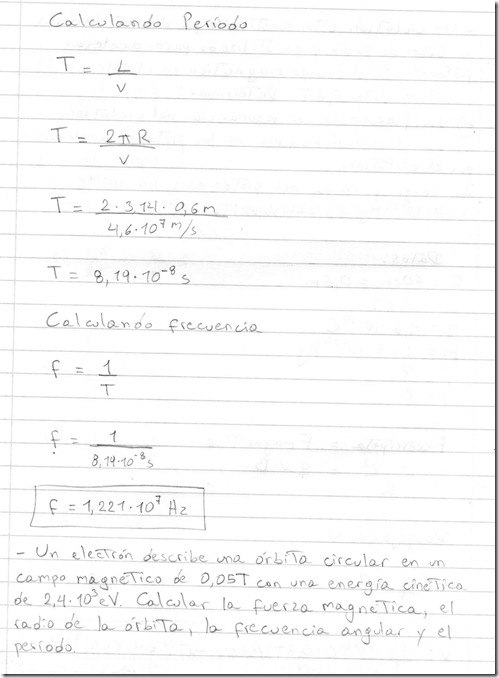 Calculando Período
T = L / v
T = 2πR / v
T = 2 · 3,14 · 0,6m / 4,6·10⁷ m/s
T = 8,19·10⁻⁸ s
Calculando frecuencia
f = 1 / T
f = 1 / 8,19·10⁻⁸s
f = 1,221·10⁷ Hz
- Un electrón describe una órbita circular en un
campo magnético de 0,05T con una energía cinética
de 2,4·10³eV. Calcular la fuerza magnética, el
radio de la órbita, la frecuencia angular y el
período.